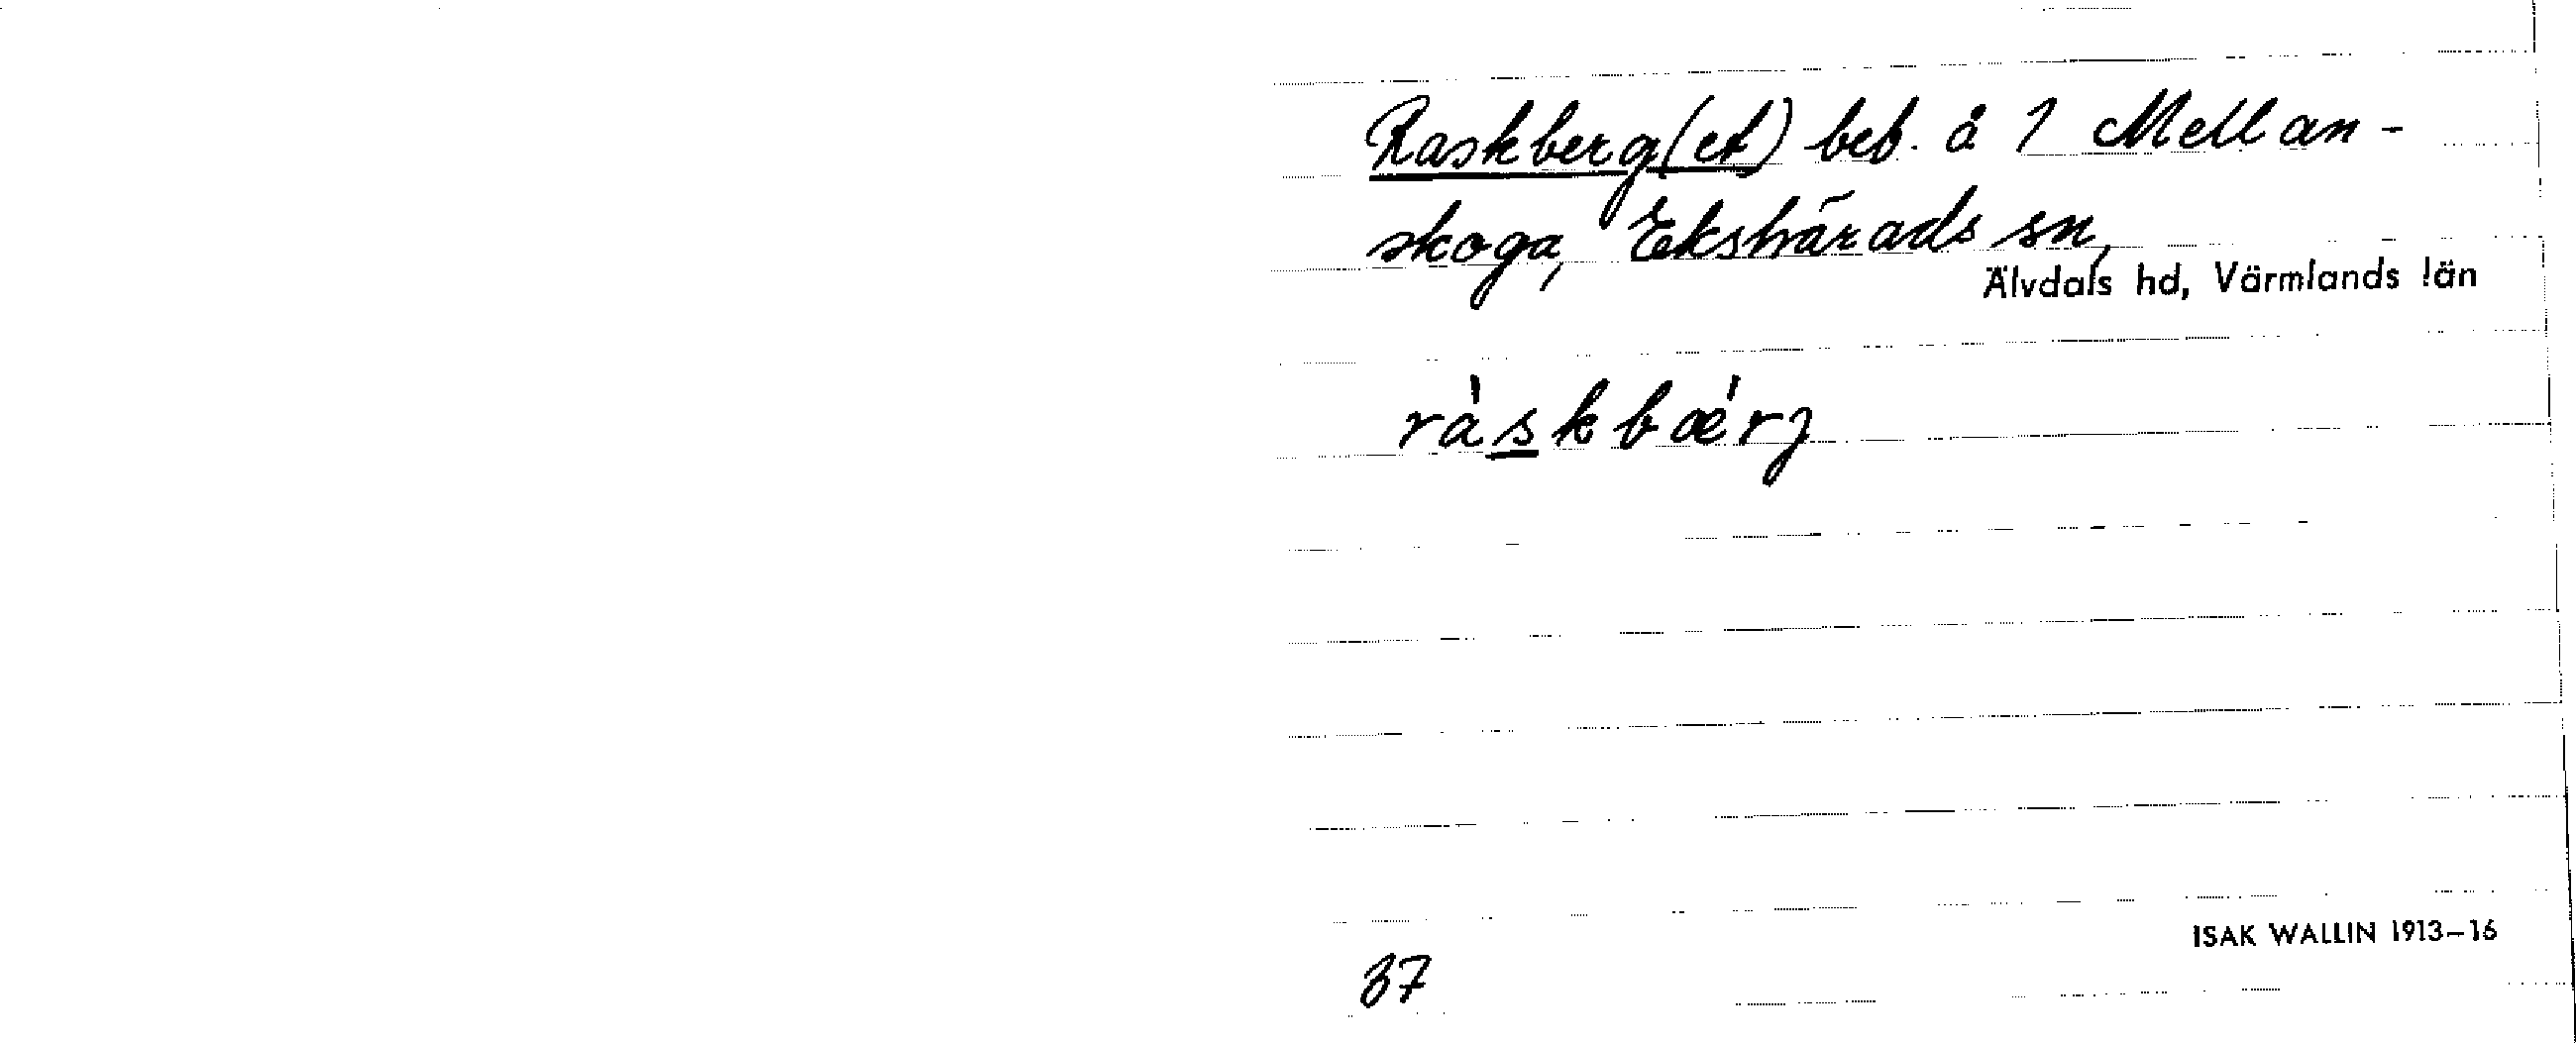 Raskberg(et) beb. å 1 Mellan-
skoga, Ekshärads sn,
Älvdals hd, Värmlands län
ràskbǽrj
ISAK WALLIN 1913–16
37